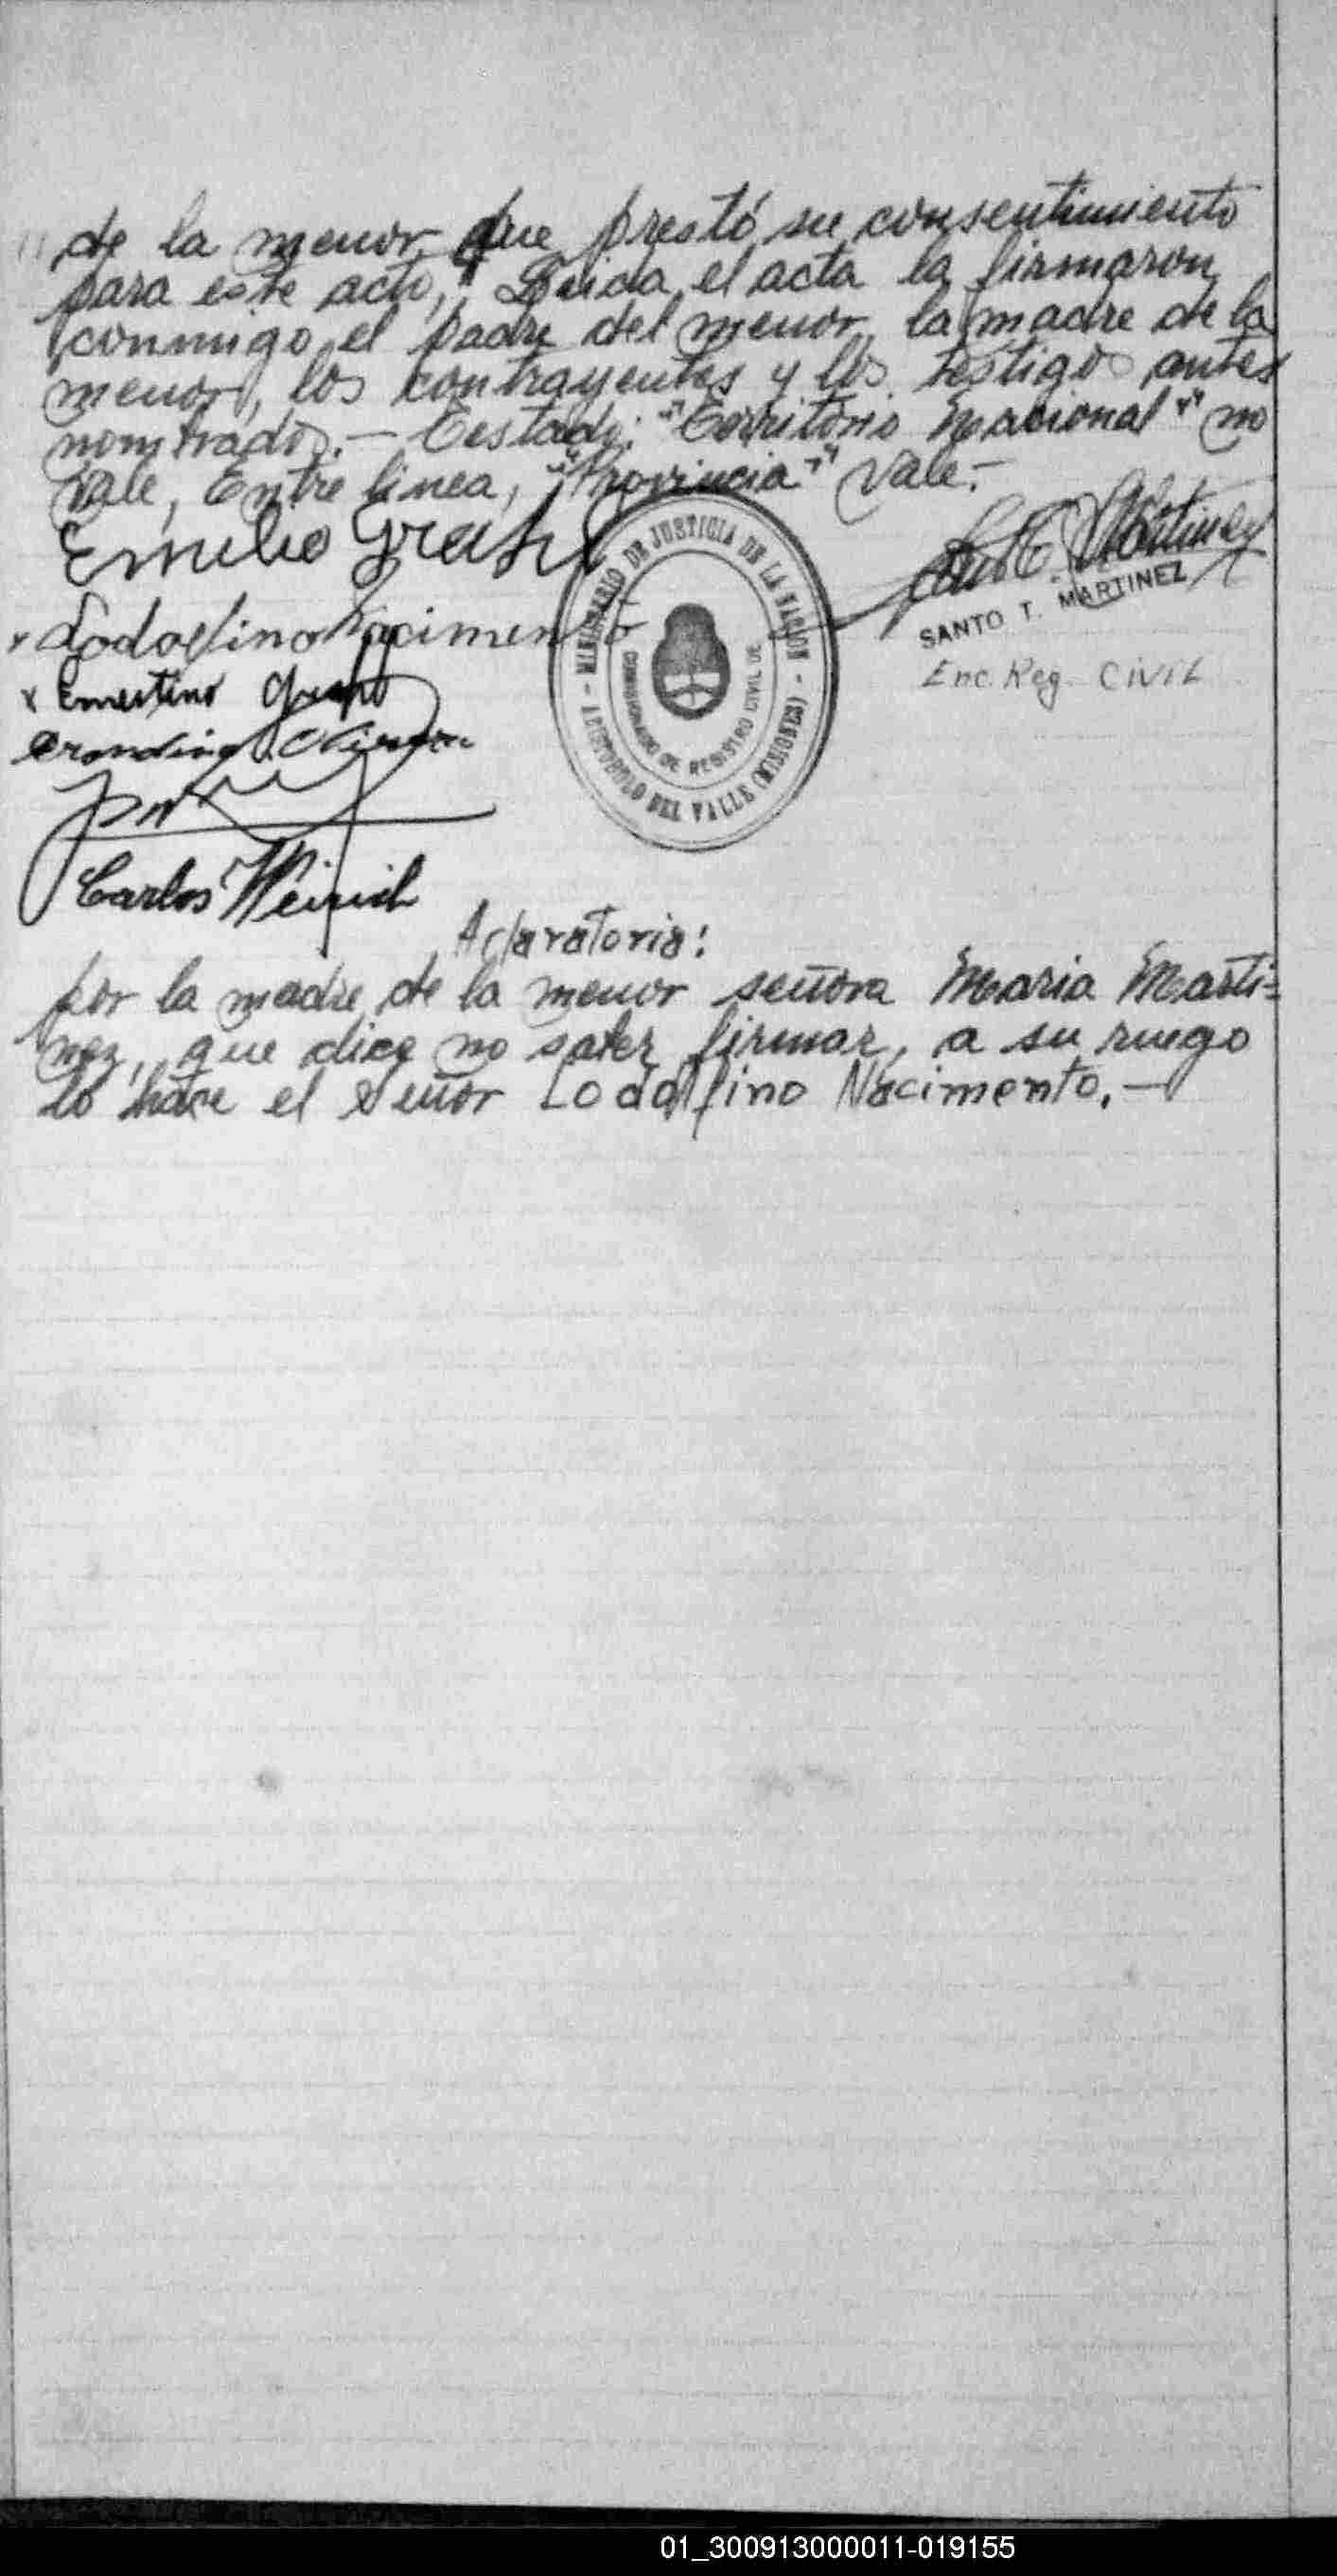 de la menor que prestó su consentimiento
para este acto, Leida el acta la firmaron
conmigo el padre del menor, la madre de la
menor, los contrayentes y los testigos antes
nombrados.- Testado: "Territorio Nacional" no
vale, Entre linea, "Provincia" Vale.-
Emilio
SANTO T. MARTINEZ
Enc. Reg. CIVIL
- MINISTERIO DE JUSTICIA DE LA NACION -
COMISIONADO DE REGISTRO CIVIL DE
ARISTOBULO DEL VALLE (MISIONES)
Lodolfino Nacimento
Ernestino
Carlos
Aclaratoria:
por la madre de la menor señora Maria Marti=
nez, que dice no saber firmar, a su ruego
lo hace el Señor Lodolfino Nacimento.-
01_300913000011-019155